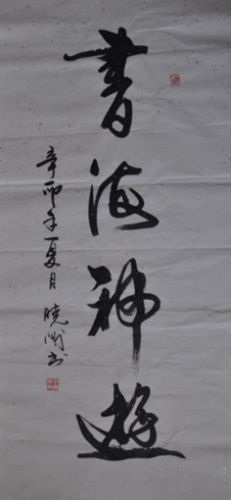 書海神遊
辛卯年夏月 曉明书